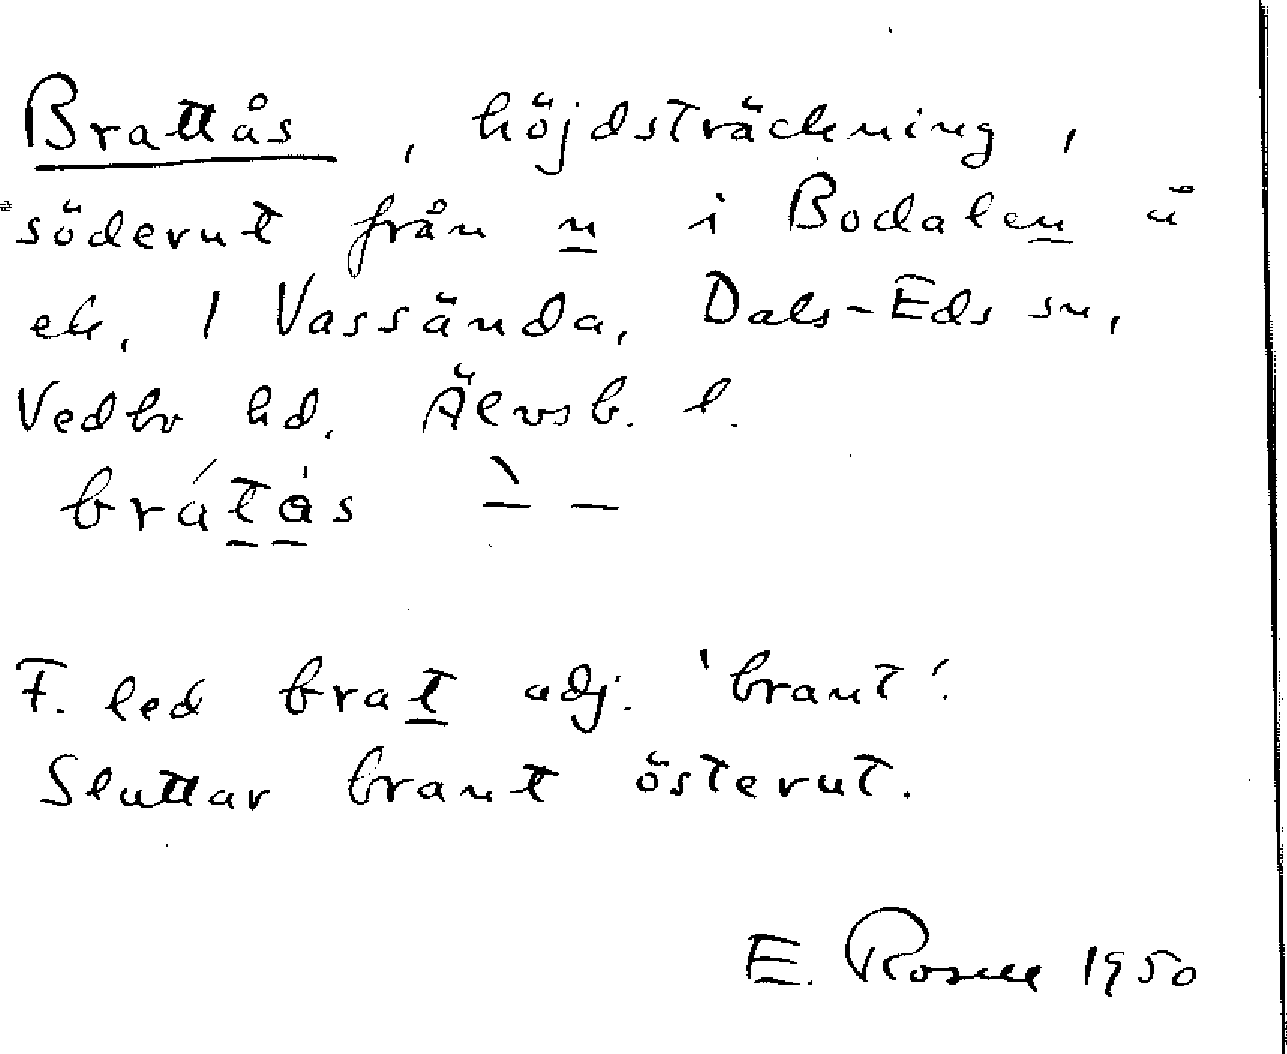 Brattås, höjdsträckning,
söderut från n i Bodalen å
ek. 1 Vassända, Dals-Eds sn,
Vedbo hd. Älvsb. l.
brátás
F. led brat adj. 'brant'.
Sluttar brant österut.
E. 1950